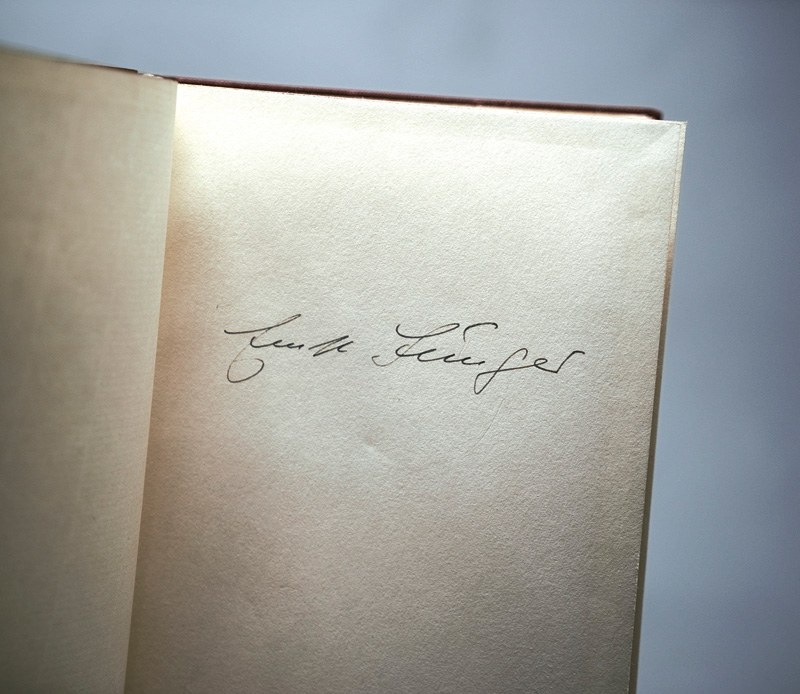 Ernst Jünger